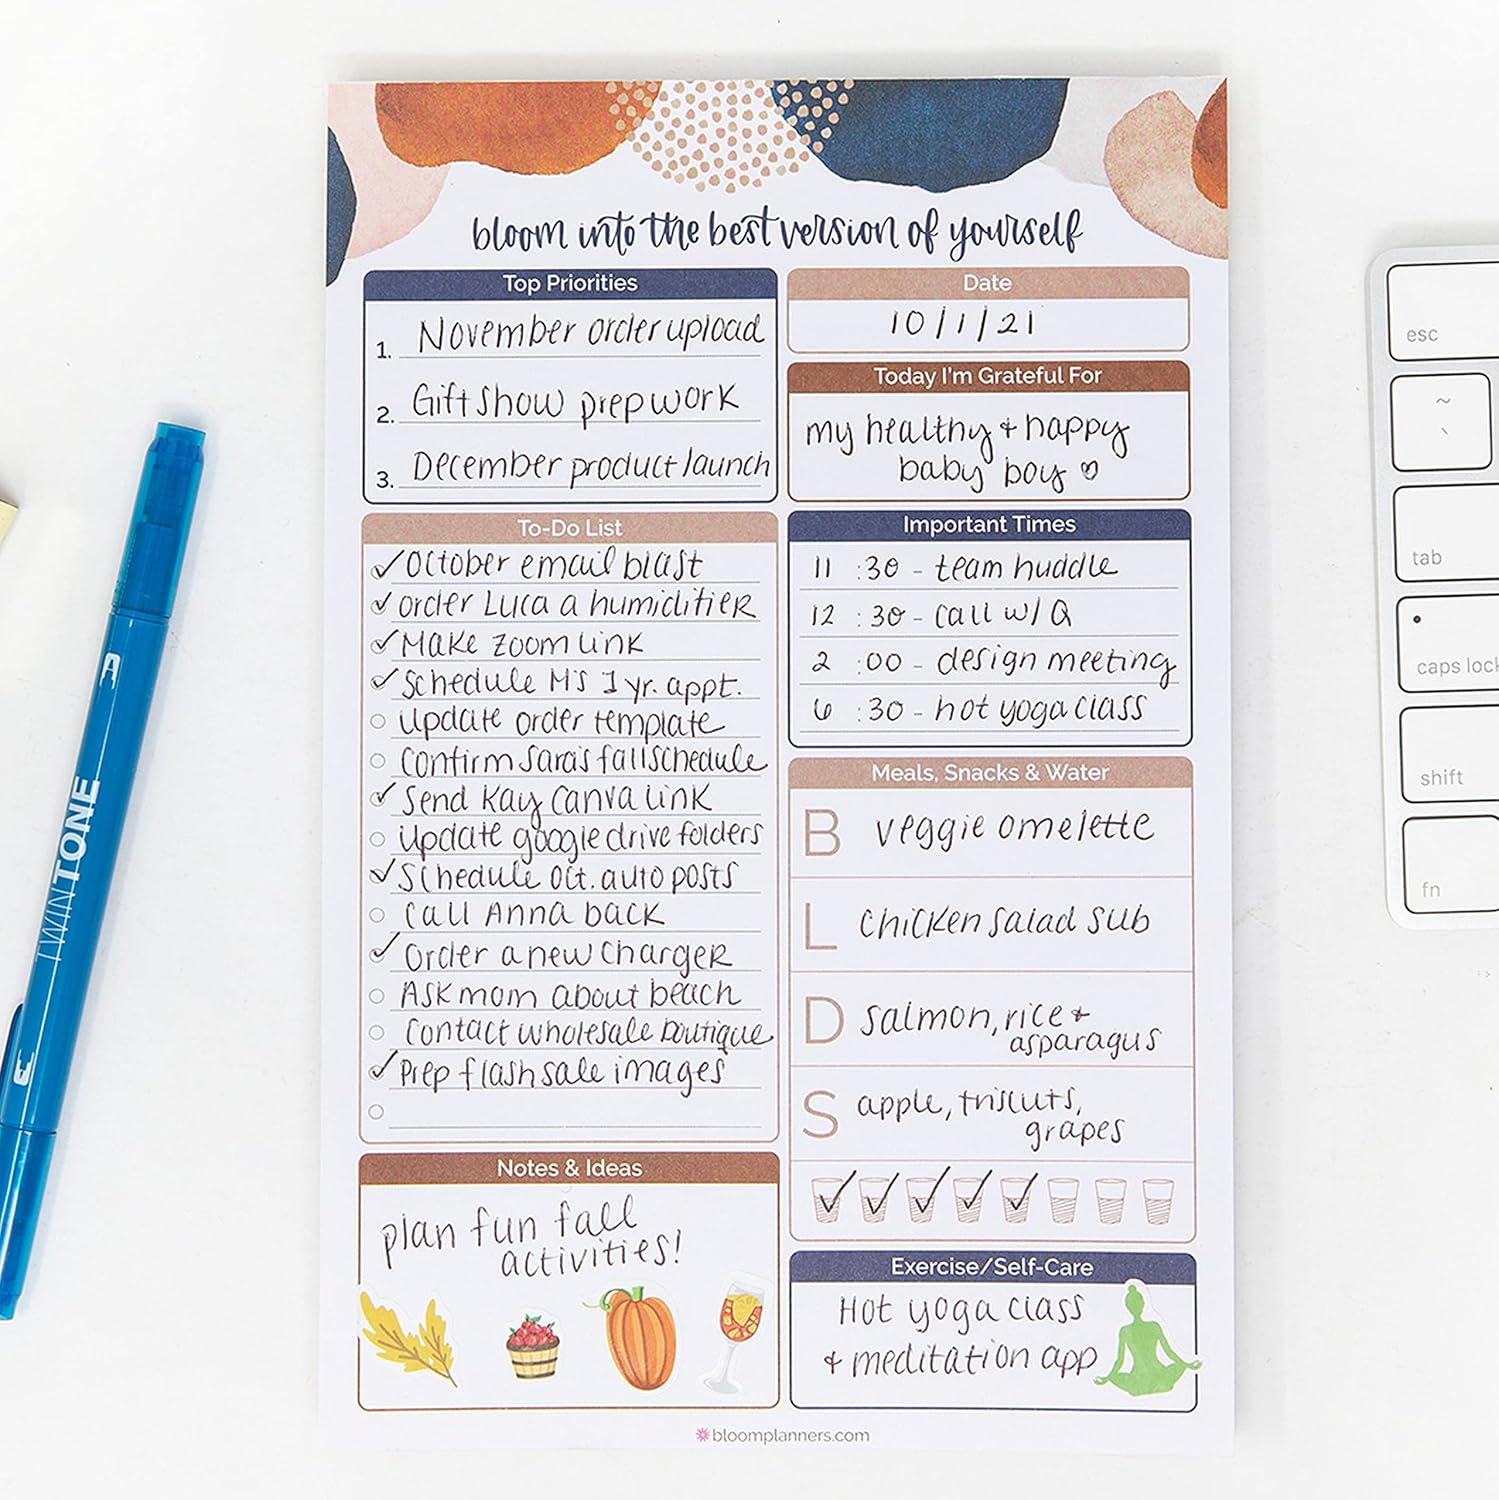 bloom into the best version of yourself
Top Priorities
1. November order upload
2. Gift Show prep work
3. December product launch
Date
10/1/21
Today I'm Grateful For
my healthy + happy
baby boy ♡
To-Do List
✓ October email blast
✓ order Luca a humidifier
✓ Make zoom link
✓ Schedule M's 1 yr. appt.
Update order template
Confirm Sara's fall schedule
✓ Send Kay Canva link
Update google drive folders
✓ Schedule oct. auto posts
Call Anna back
✓ Order a new charger
Ask mom about beach
Contact wholesale boutique
✓ Prep flash sale images
Important Times
11 :30 - team huddle
12 :30 - call w/ Q
2 :00 - design meeting
6 :30 - hot yoga class
Meals, Snacks & Water
B veggie omelette
L chicken salad sub
D salmon, rice +
asparagus
S apple, triscuts,
grapes
Notes & Ideas
plan fun fall
activities!
Exercise/Self-Care
Hot yoga class
+ meditation app
bloomplanners.com
A
TWINTONE
esc
~
`
tab
caps lock
shift
fn